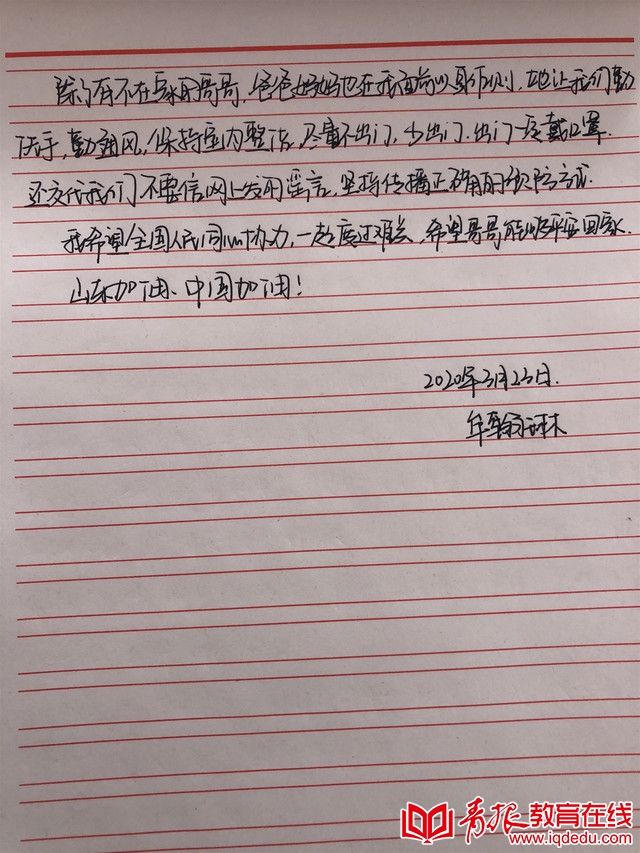 除了有不在家的哥哥,爸爸妈妈也在我面前以身作则,也让我们勤
洗手,勤通风,保持室内整洁,尽量不出门,少出门.出门一定戴口罩.
还交代我们不要信网上发的谣言,坚持传播正确的预防方式.
我希望全国人民同心协力,一起度过难关,希望哥哥能够平安回家.
山东加油、中国加油!
2020年3月23日.
牟翰
青报教育在线
www.iqdedu.com